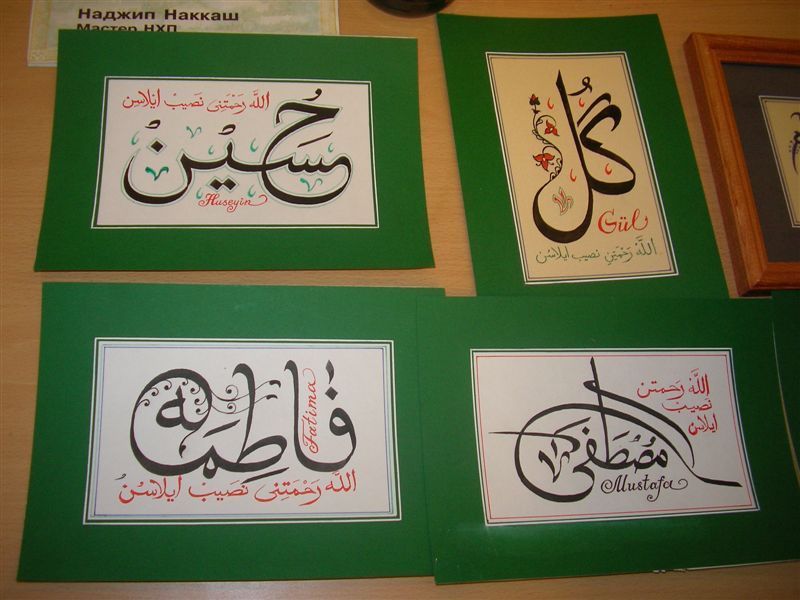 Наджип Наккаш
Мастер НХП
اللّٰه رَحْمَتِنِى نَصِيبْ ايْلاسِن
حُسَيْنْ
Huseyin
كُل
Gül
اللّٰه رَحْمَتِنِ نصيب ايلاسن
فاطِمَه
Fatima
اللّٰه رَحْمَتِنِى نَصِيبْ ايلاسُنْ
اللّٰه رحمتن
نصيبْ
ايلاسن
مُصْطَفَى
Mustafa